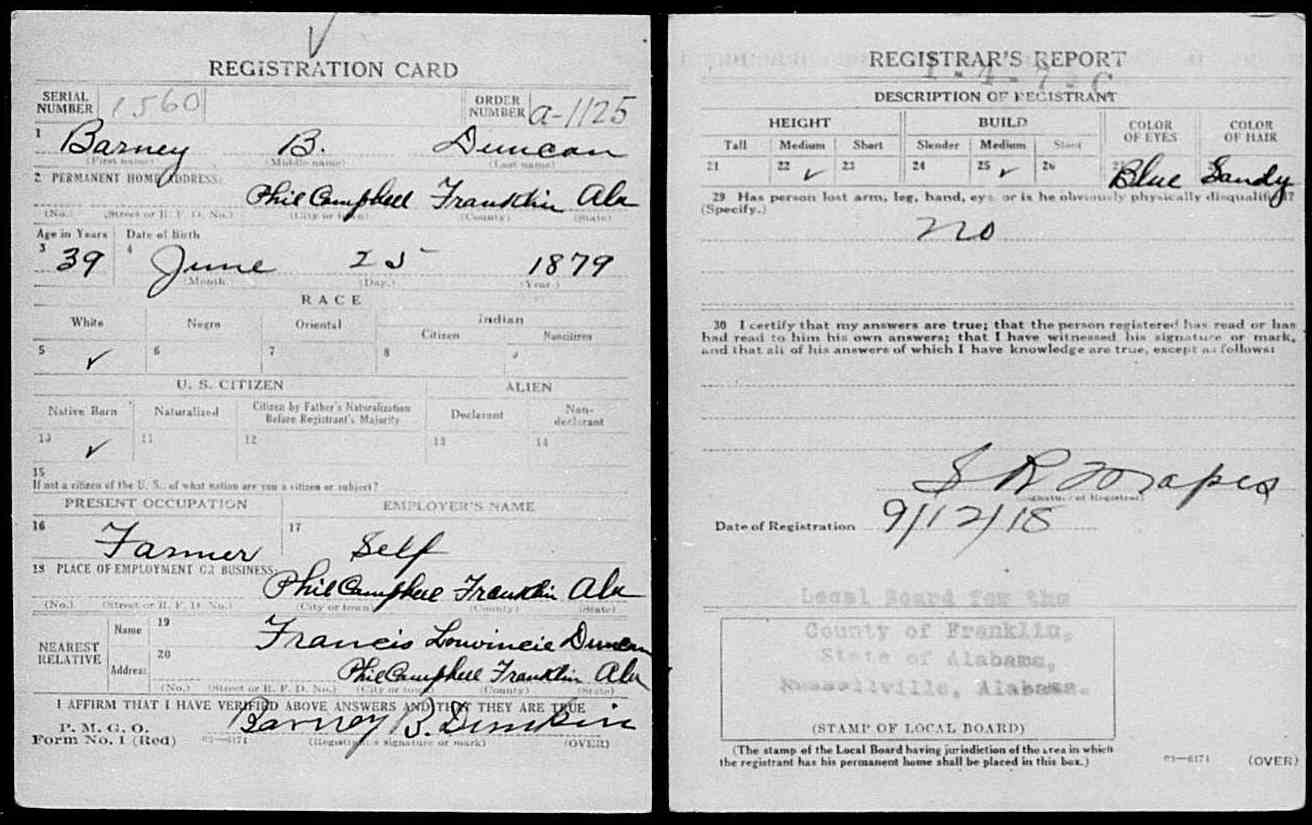 REGISTRATION CARD
SERIAL NUMBER 1560 ORDER NUMBER a-1125
1 Barney B. Duncan
(First name) (Middle name) (Last name)
2 PERMANENT HOME ADDRESS:
Phil Campbell Franklin Ala
(No.) (Street or R. F. D. No.) (City or town) (County) (State)
Age in Years Date of Birth
3 39 4 June 25 1879
(Month) (Day.) (Year.)
RACE
White Negro Oriental Indian
Citizen Noncitizen
5 ✓ 6 7 8 9
U. S. CITIZEN ALIEN
Native Born Naturalized Citizen by Father's Naturalization Before Registrant's Majority Declarant Non-declarant
10 ✓ 11 12 13 14
15
If not a citizen of the U. S., of what nation are you a citizen or subject?
PRESENT OCCUPATION EMPLOYER'S NAME
16 Farmer 17 Self
18 PLACE OF EMPLOYMENT OR BUSINESS:
Phil Campbell Franklin Ala
(No.) (Street or R. F. D. No.) (City or town) (County) (State)
NEAREST RELATIVE Name 19 Francis Louvincie Duncan
Address 20 Phil Campbell Franklin Ala
(No.) (Street or R. F. D. No.) (City or town) (County) (State)
I AFFIRM THAT I HAVE VERIFIED ABOVE ANSWERS AND THAT THEY ARE TRUE
P. M. G. O.
Form No. 1 (Red) 03—6171 Barney B. Dunkin
(Registrant's signature or mark) (OVER)
REGISTRAR'S REPORT
1-4-7-C
DESCRIPTION OF REGISTRANT
HEIGHT BUILD COLOR OF EYES COLOR OF HAIR
Tall Medium Short Slender Medium Stout
21 22 ✓ 23 24 25 ✓ 26 27 Blue Sandy
29 Has person lost arm, leg, hand, eye, or is he obviously physically disqualified?
(Specify.)
no
30 I certify that my answers are true; that the person registered has read or has
had read to him his own answers; that I have witnessed his signature or mark,
and that all of his answers of which I have knowledge are true, except as follows:
S R Mapes
(Signature of Registrar)
Date of Registration 9/12/18
Local Board for the
County of Franklin,
State of Alabama,
Russellville, Alabama.
(STAMP OF LOCAL BOARD)
(The stamp of the Local Board having jurisdiction of the area in which
the registrant has his permanent home shall be placed in this box.)
03—6171 (OVER)